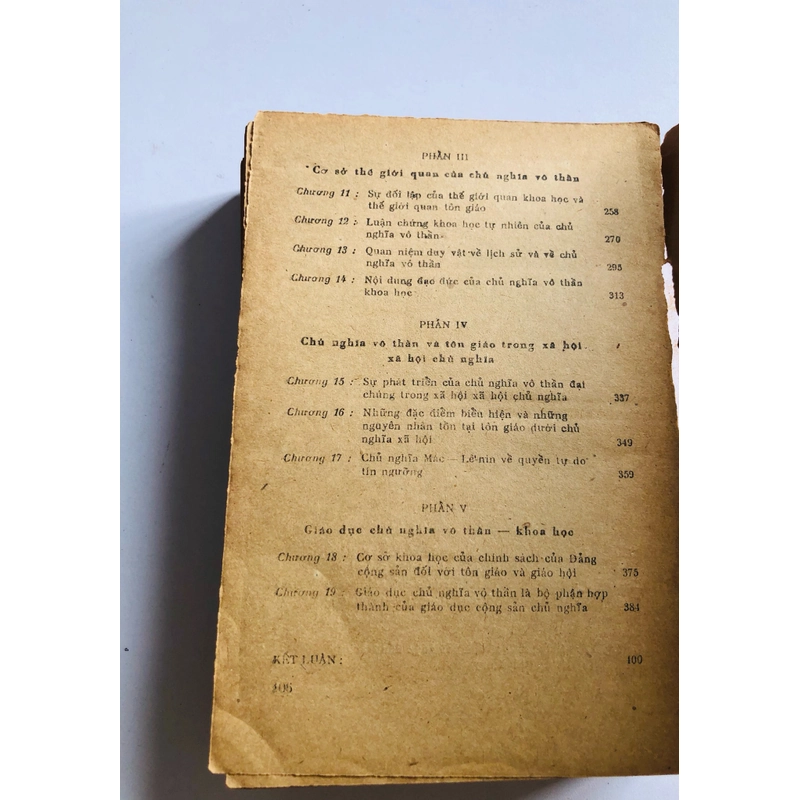 PHẦN III
Cơ sở thế giới quan của chủ nghĩa vô thần
Chương 11 : Sự đối lập của thế giới quan khoa học và
thế giới quan tôn giáo 258
Chương 12 : Luận chứng khoa học tự nhiên của chủ
nghĩa vô thần 270
Chương 13 : Quan niệm duy vật về lịch sử và về chủ
nghĩa vô thần 295
Chương 14 : Nội dung đạo đức của chủ nghĩa vô thần
khoa học 313
PHẦN IV
Chủ nghĩa vô thần và tôn giáo trong xã hội
xã hội chủ nghĩa
Chương 15 : Sự phát triển của chủ nghĩa vô thần đại
chúng trong xã hội xã hội chủ nghĩa 337
Chương 16 : Những đặc điểm biểu hiện và những
nguyên nhân tồn tại tôn giáo dưới chủ
nghĩa xã hội 349
Chương 17 : Chủ nghĩa Mác – Lênin về quyền tự do
tín ngưỡng 359
PHẦN V
Giáo dục chủ nghĩa vô thần — khoa học
Chương 18 : Cơ sở khoa học của chính sách của Đảng
cộng sản đối với tôn giáo và giáo hội 375
Chương 19 : Giáo dục chủ nghĩa vô thần là bộ phận hợp
thành của giáo dục cộng sản chủ nghĩa 384
KẾT LUẬN : 400
406